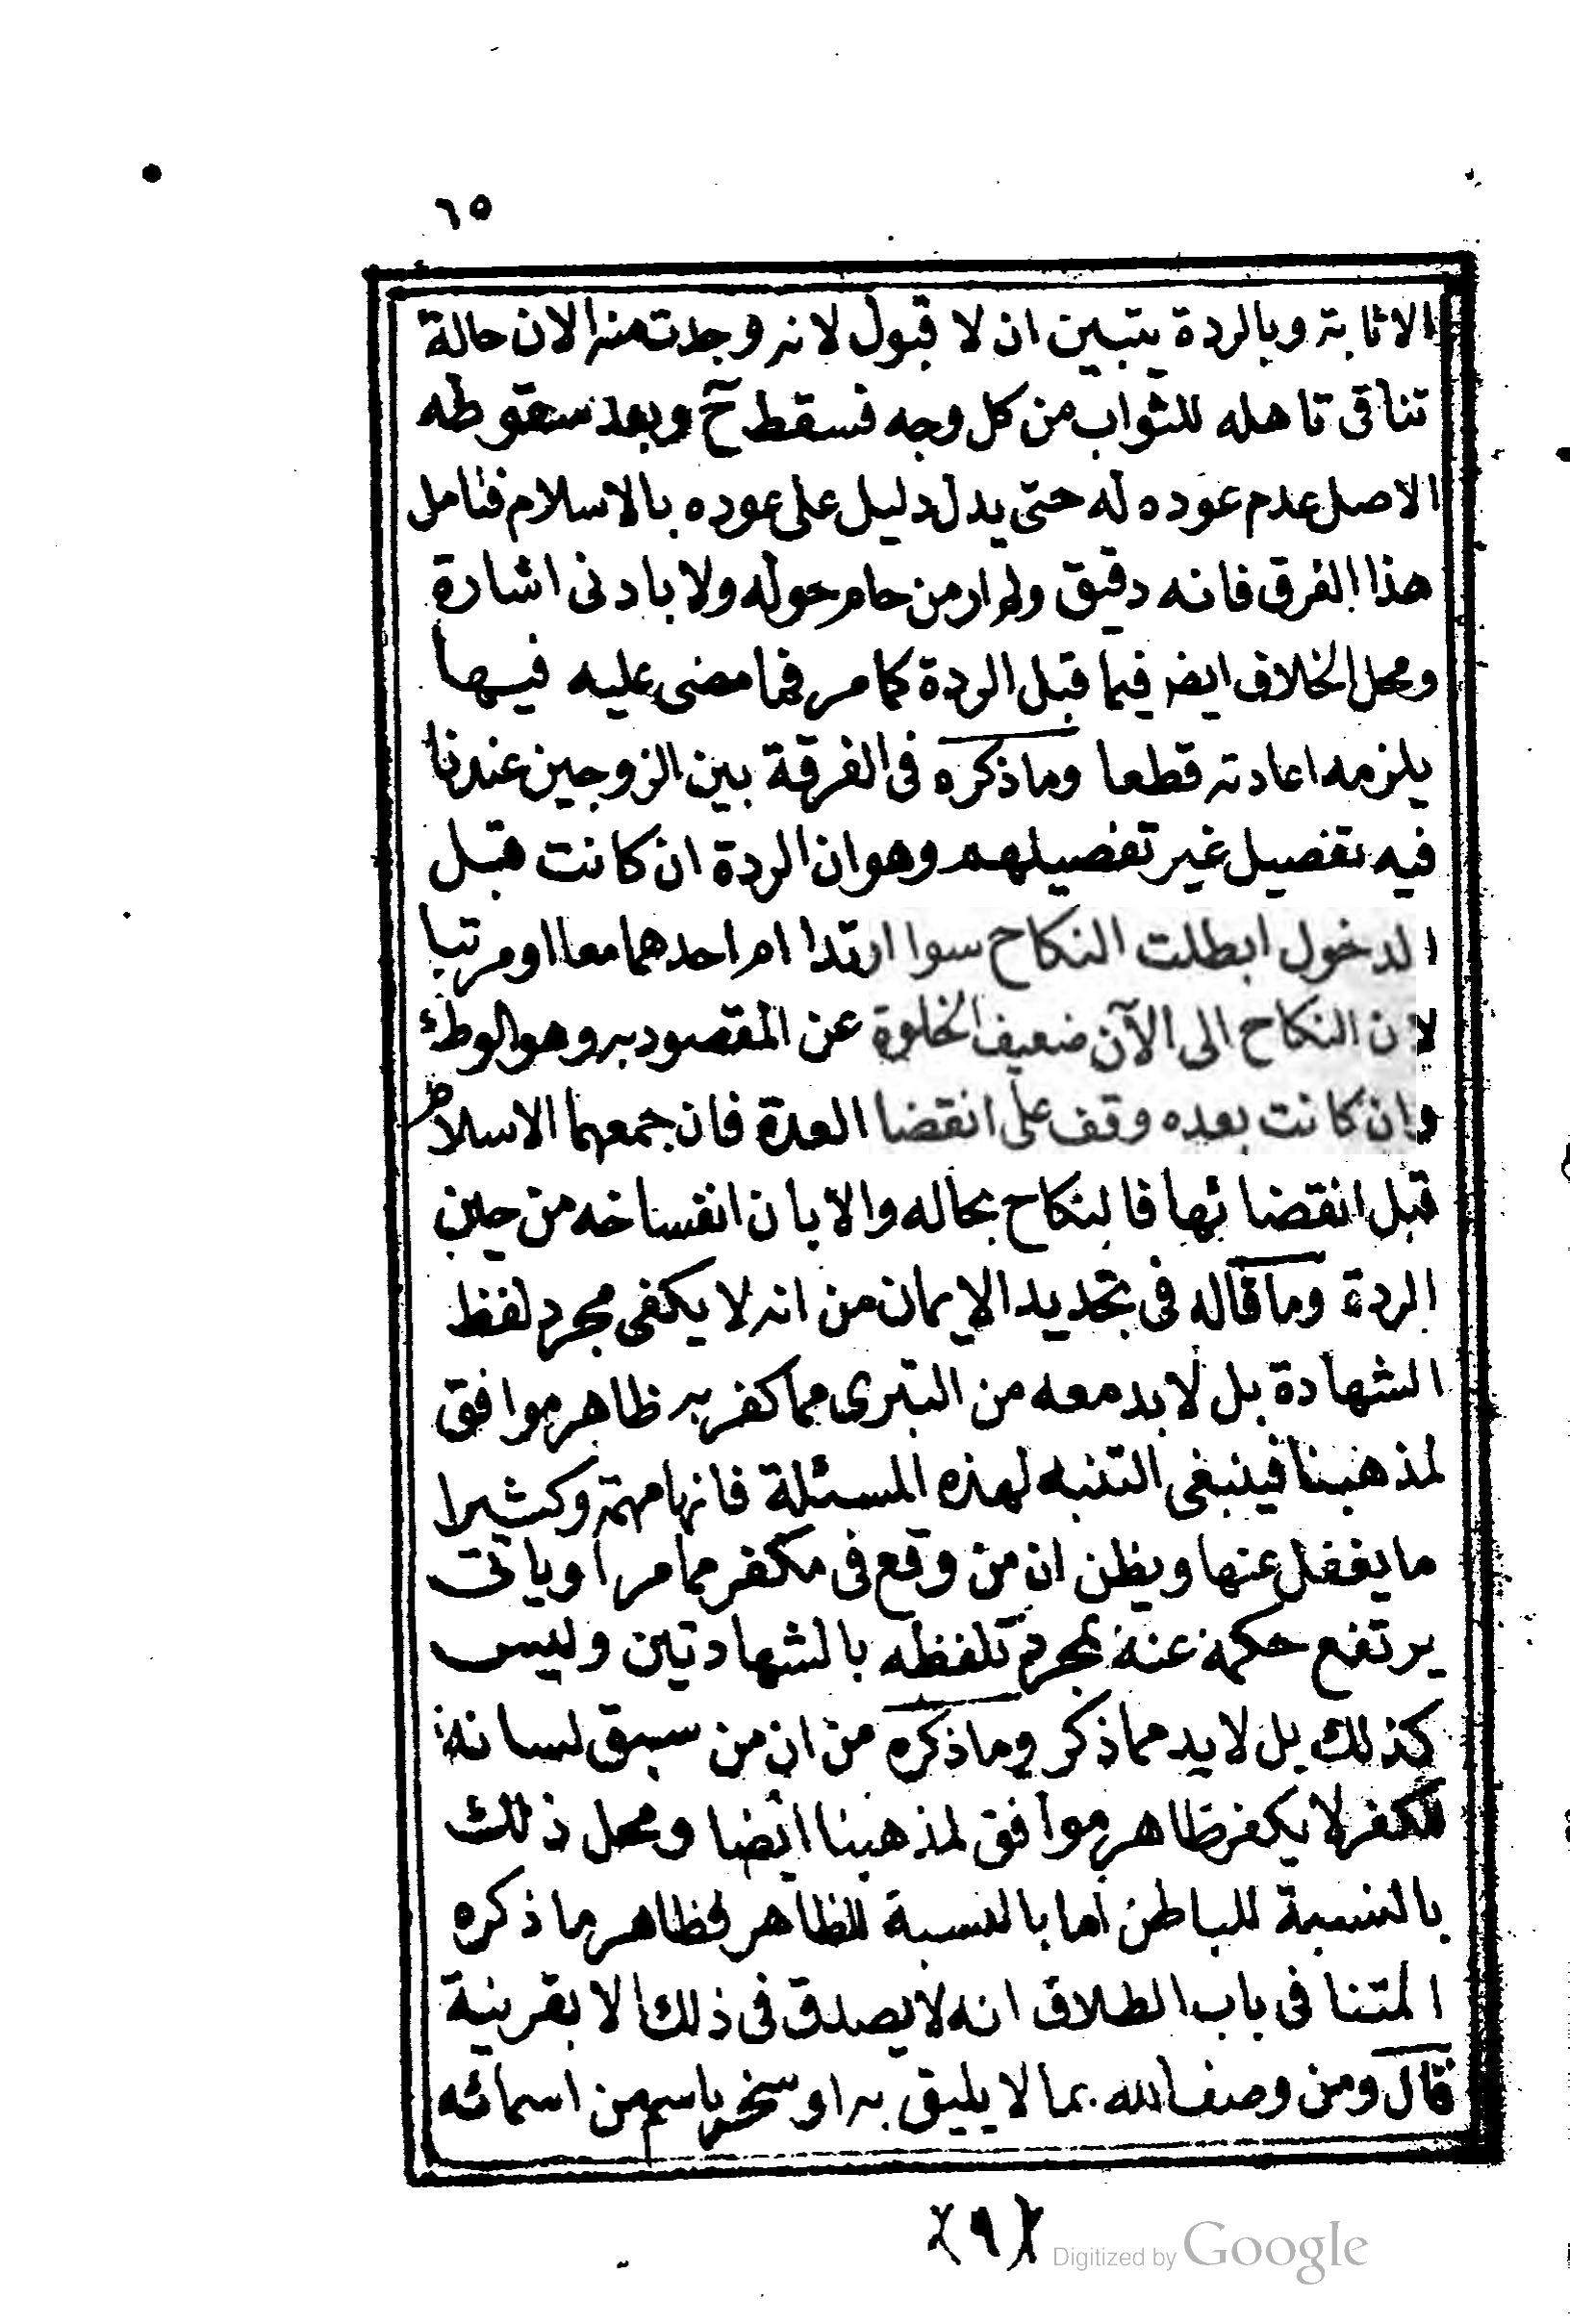 ٦٥
الاثابة وبالردة يتبين ان لا قبول لانه وجدت منه الان حالة
تنافى تاهله للثواب من كل وجه فسقط ح وبعد سقوطه
الاصل عدم عوده له حتى يدل دليل على عوده بالاسلام فتامل
هذا الفرق فانه دقيق ولم ار من حام حوله ولا بادنى اشارة
ومحل الخلاف ايضا فيما قبل الردة كما مر فما مضى عليه فيها
يلزمه اعادته قطعا وما ذكره فى الفرقة بين الزوجين عندنا
فيه تفصيل غير تفصيلهم وهو ان الردة ان كانت قبل
الدخول ابطلت النكاح سوا ارتدا ام احدهما معا او مرتبا
لان النكاح الى الآن ضعيف الخلوة عن المقصود به وهو الوطئ
وان كانت بعده وقف على انقضا العدة فان جمعهما الاسلام
قبل انقضائها فالنكاح بحاله والا بان انفساخه من حين
الردة وما قاله فى تجديد الايمان من انه لا يكفى مجرد لفظ
الشهادة بل لا بد معه من التبرى مما كفر به ظاهر موافق
لمذهبنا فينبغى التنبه لهذه المسئلة فانها مهمة وكثيرا
ما يغفل عنها ويظن ان من وقع فى مكفر مما مر او ياتى
يرتفع حكمه عنه بمجرد تلفظه بالشهادتين وليس
كذلك بل لا بد مما ذكر وما ذكره من ان من سبق لسانه
للكفر لا يكفر ظاهر موافق لمذهبنا ايضا ومحل ذلك
بالنسبة للباطن اما بالنسبة للظاهر فظاهر ما ذكره
ائمتنا فى باب الطلاق انه لا يصدق فى ذلك الا بقرينة
قال ومن وصف الله بما لا يليق به او سخر باسم من اسمائه
(٩)
Digitized by Google